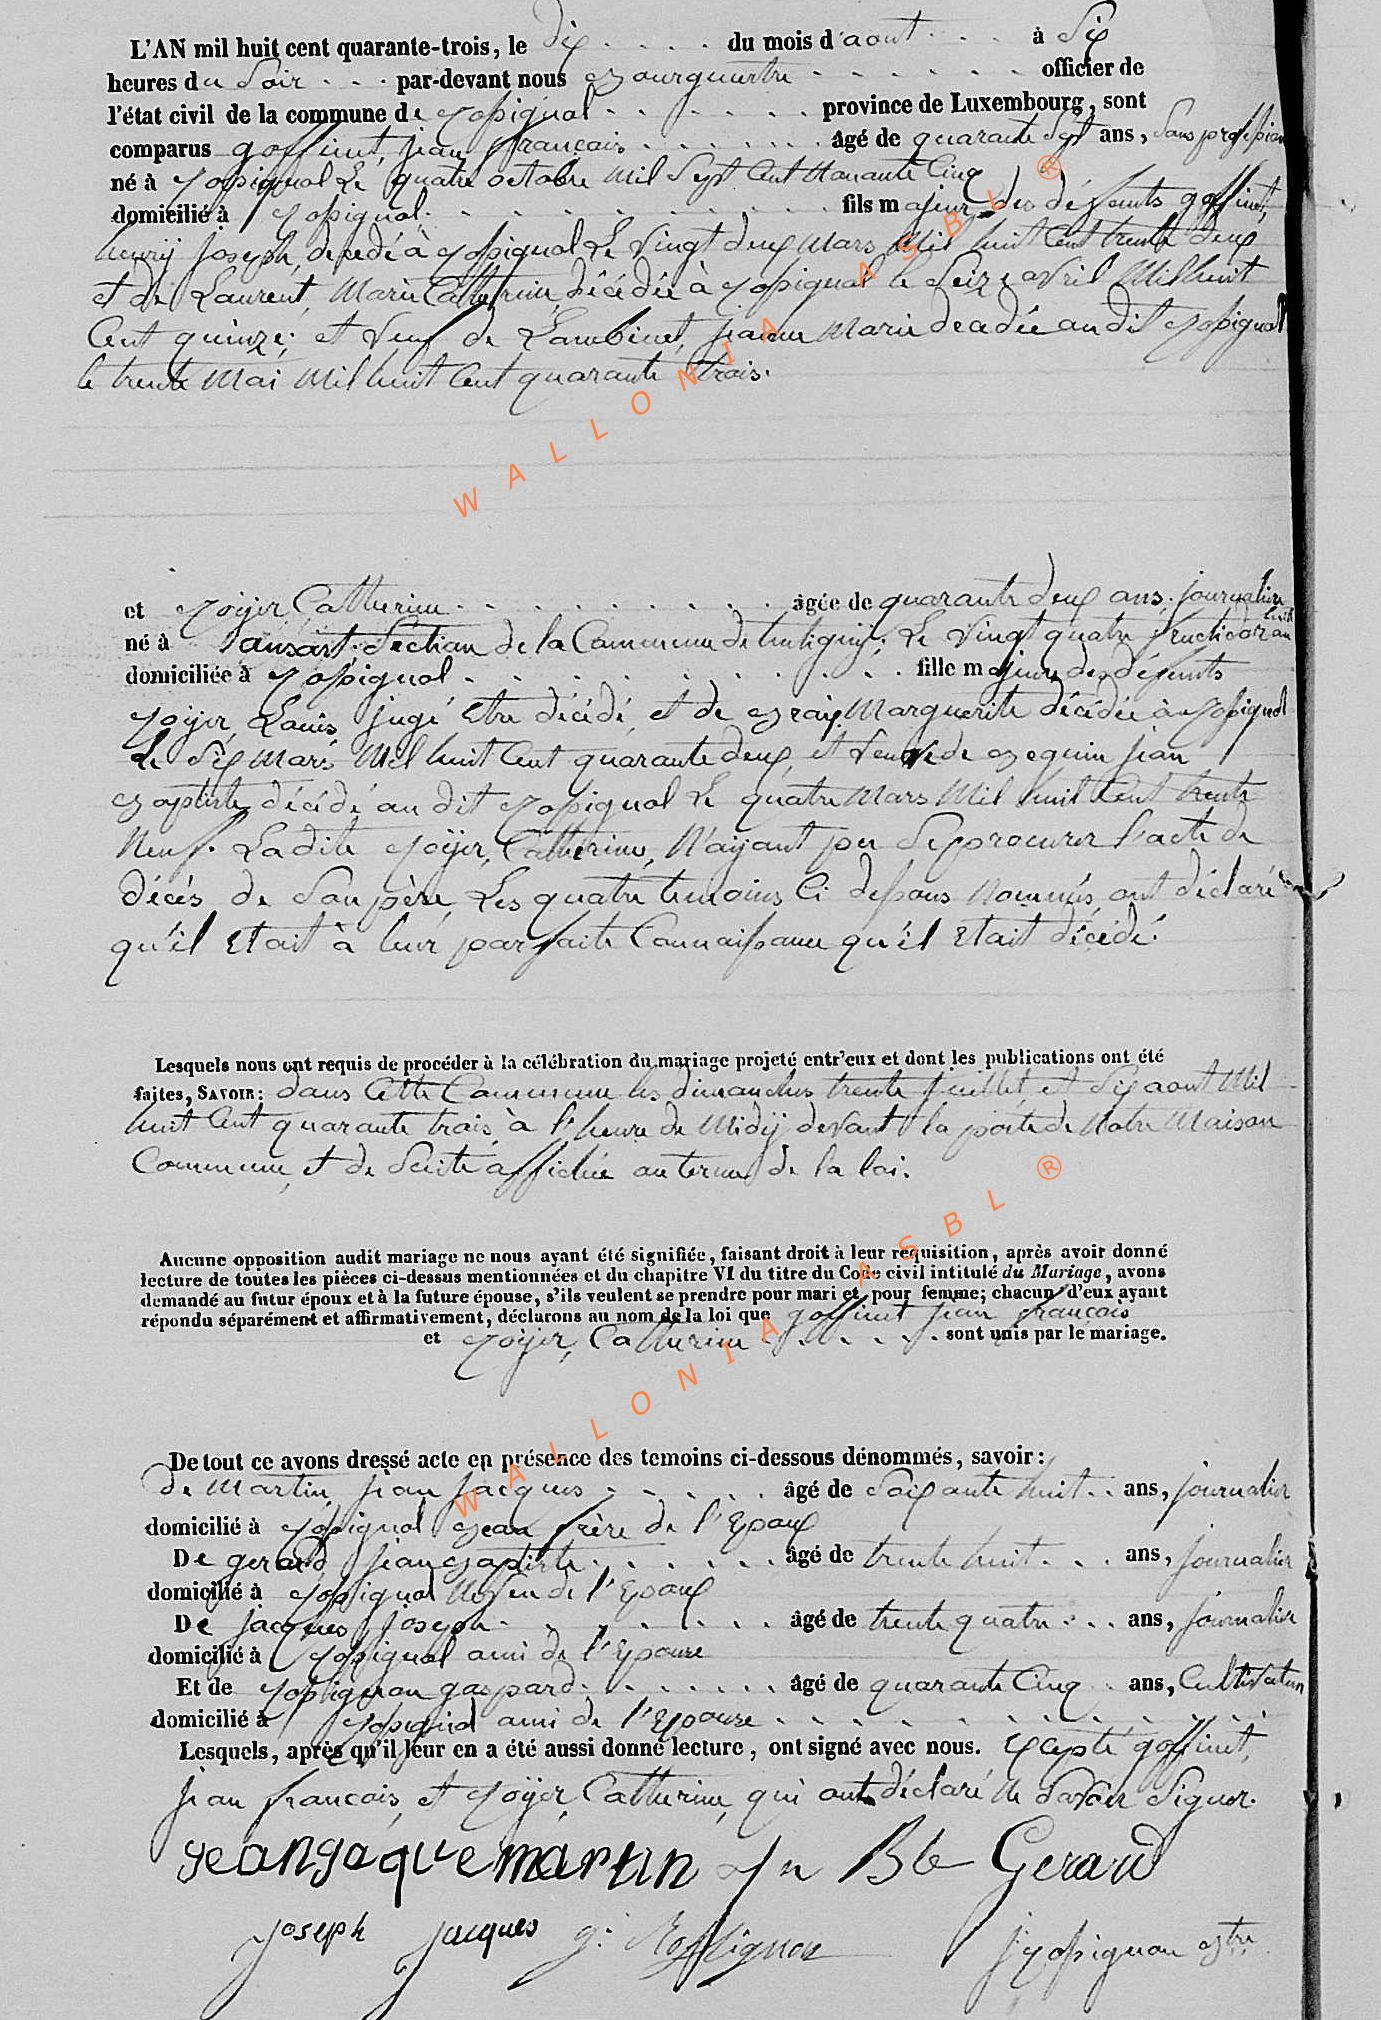 L'AN mil huit cent quarante-trois, le dix du mois d'aout à Six
heures du Soir par-devant nous Bourguestre officier de
l'état civil de la commune de rossignol province de Luxembourg, sont
comparus goffinet, jean françois âgé de quarante Sept ans, Sans profession
né à rossignol Le quatre octobre Mil Sept Cent Nonante Cinq
domicilié à rossignol fils majeur des défunts goffinet,
henry joseph, decedé à rossignol Le Vingt deux Mars Mil huit Cent trente deux
et de Laurent, Marie Catherine, décédée à rossignol le Seize avril Mil huit
Cent quinze; et Veuf de Lambinet, jeanne Marie decedée au dit rossignol
le trente Mai Mil huit Cent quarante trois.
et royer, Catherine âgée de quarante deux ans, journalière
né à ansart, Section de la Commune de tintigny, Le Vingt quatre fructidor an huit
domiciliée à rossignol fille majeure des défunts
royer, Louis, jugé Etre décédé, et de Bray, Marguerite décédée à rossignol
Le Six Mars Mil huit Cent quarante deux, et Veuve de Bequin jean
Baptiste, décédé au dit rossignol Le quatre Mars Mil huit Cent trente
Neuf. Ladite royer, Catherine, N'ayant pu Se procurer l'acte de
décès de Son père, Les quatre temoins Ci dessous Nommés, ont déclaré
qu'il Etait à leur parfaite Connaissance qu'il Etait décédé.
Lesquels nous ont requis de procéder à la célébration du mariage projeté entr'eux et dont les publications ont été
faites, SAVOIR: dans Cette Commune les dimanches trente juillet, et Six aout Mil
huit Cent quarante trois, à l'heure de Midy devant la porte de Notre Maison
Commune, et de Suite affichée au terme de la loi.
Aucune opposition audit mariage ne nous ayant été signifiée, faisant droit à leur requisition, après avoir donné
lecture de toutes les pièces ci-dessus mentionnées et du chapitre VI du titre du Code civil intitulé du Mariage, avons
demandé au futur époux et à la future épouse, s'ils veulent se prendre pour mari et pour femme; chacun d'eux ayant
répondu séparément et affirmativement, déclarons au nom de la loi que goffinet jean françois
et royer, Catherine sont unis par le mariage.
De tout ce avons dressé acte en présence des temoins ci-dessous dénommés, savoir:
de Martin, jean jacques âgé de Soixante huit ans, journalier
domicilié à rossignol Beau frère de l'Epoux
De gerard, jean Baptiste âgé de trente huit ans, journalier
domicilié à rossignol Neveu de l'Epoux
De jacques joseph âgé de trente quatre ans, journalier
domicilié à rossignol ami de l'Epouse
Et de rossignon gaspard âgé de quarante Cinq ans, Cultivateur
domicilié à rossignol ami de l'Epouse
Lesquels, après qu'il leur en a été aussi donné lecture, ont signé avec nous. Excepté goffinet,
jean francois, et royer, Catherine, qui ont déclaré Ne Savoir Signer.
jeanjaque martin jn Bte Gerard
joseph jacques g: Rossignon j rossignon Btre
WALLONIA ASBL ®
WALLONIA ASBL ®